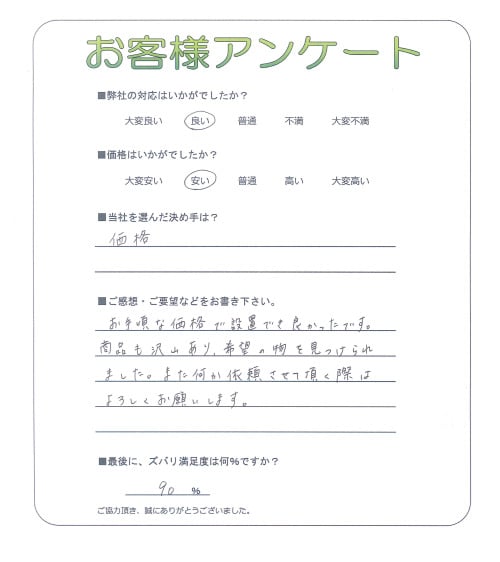 お客様アンケート
■弊社の対応はいかがでしたか？
大変良い 良い 普通 不満 大変不満
■価格はいかがでしたか？
大変安い 安い 普通 高い 大変高い
■当社を選んだ決め手は？
価格
■ご感想・ご要望などをお書き下さい。
お手頃な価格で設置でき良かったです。
商品も沢山あり、希望の物を見つけられ
ました。また何か依頼させて頂く際は
よろしくお願いします。
■最後に、ズバリ満足度は何%ですか？
90 %
ご協力頂き、誠にありがとうございました。